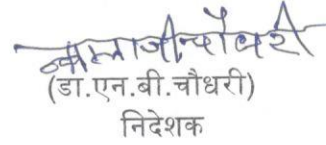 (डा.एन.बी.चौधरी)
निदेशक